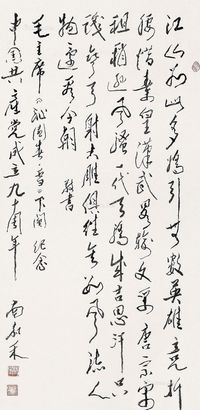 江山如此多娇引无数英雄竞折
腰惜秦皇漢武略输文采唐宗宋
祖稍逊风骚一代天骄成吉思汗只
識弯弓射大雕俱往矣数风流人
物还看今朝 敬書
毛主席沁园春雪下阕纪念
中国共產党成立九十周年